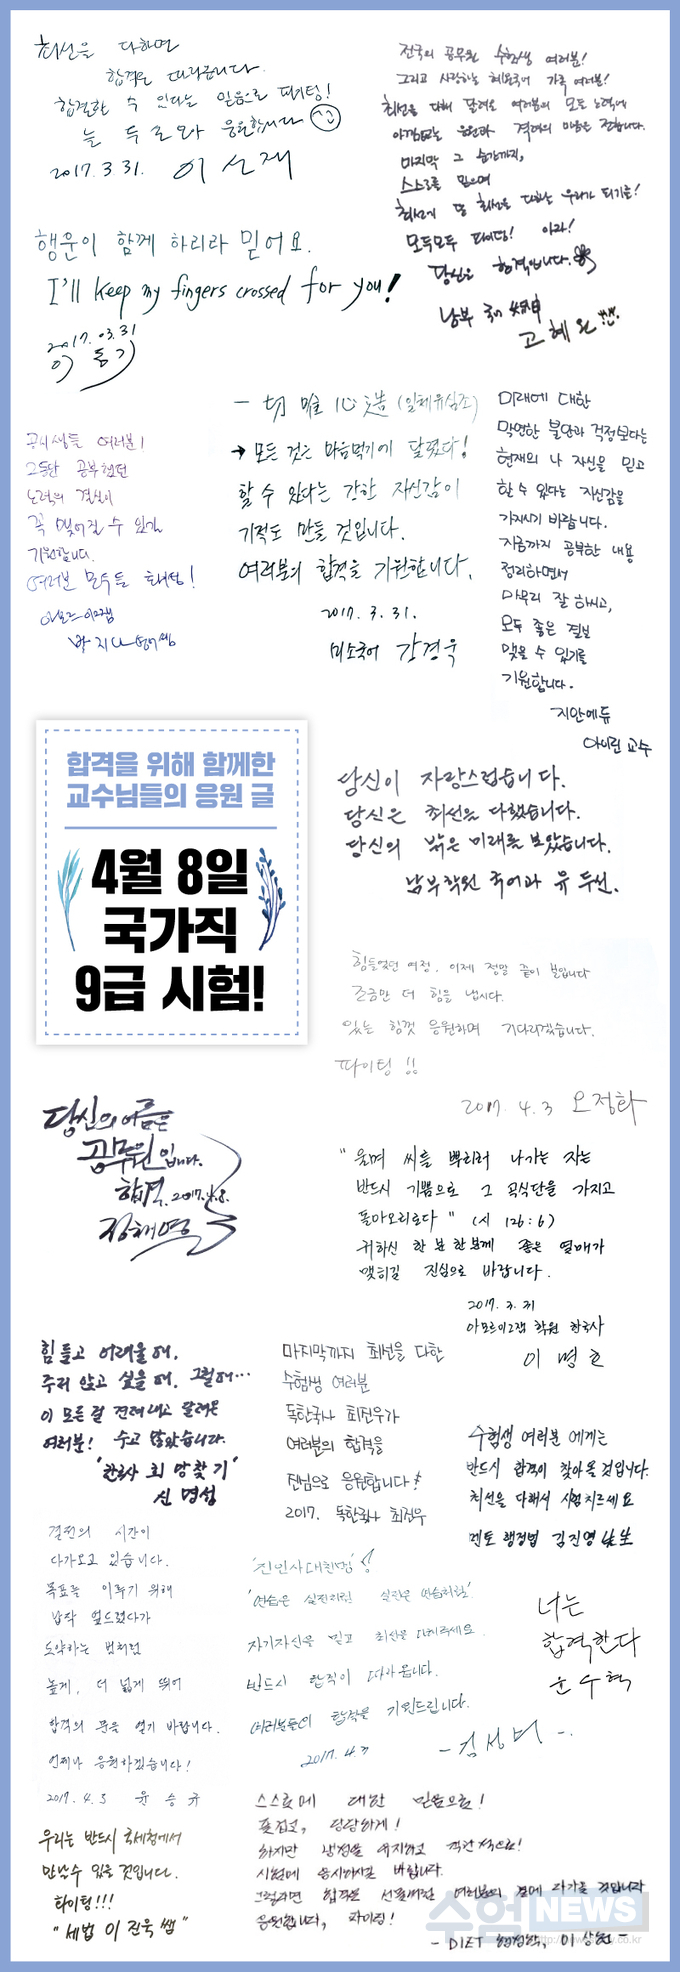 최선을 다하면
합격은 따라옵니다.
합격할 수 있다는 믿음으로 파이팅!
늘 두 손 모아 응원합시다
2017. 3. 31. 이선재
전국의 공무원 수험생 여러분!
그리고 사랑하는 혜원국어 가족 여러분!
최선을 다해 달려온 여러분의 모든 노력에
아낌없는 응원과 격려의 마음을 전합니다.
마지막 그 순간까지,
스스로를 믿으며
최선을 다하는 우리가 되기를!
모두모두 파이팅! 아자!
당신은 합격입니다.
남부 국어
고혜원
행운이 함께 하리라 믿어요.
I'll keep my fingers crossed for you!
2017. 03. 31
이동기
一切唯心造 (일체유심조)
→ 모든 것은 마음먹기에 달렸다!
할 수 있다는 강한 자신감이
기적도 만들 것입니다.
여러분의 합격을 기원합니다.
2017. 3. 31.
미소국어 강경욱
미래에 대한
막연한 불안과 걱정보다는
현재의 나 자신을 믿고
할 수 있다는 자신감을
가지시기 바랍니다.
지금까지 공부한 내용
정리하면서
마무리 잘 하시고,
모두 좋은 결실
맺을 수 있기를
기원합니다.
지안에듀
아이린 교수
공시생들 여러분!
그동안 공부했던
노력의 결실이
꼭 맺어질 수 있길
기원합니다.
여러분 모두들 화이팅!
아모르이그잼
박지나 영어쌤
합격을 위해 함께한
교수님들의 응원 글
4월 8일
국가직
9급 시험!
당신이 자랑스럽습니다.
당신은 최선을 다했습니다.
당신의 밝은 미래를 보았습니다.
남부학원 국어과 유두선.
힘들었던 여정. 이제 정말 끝이 보입니다
조금만 더 힘을 냅시다.
있는 힘껏 응원하며 기다리겠습니다.
파이팅!!
2017. 4. 3 오정화
당신의 이름은
공무원입니다.
합격. 2017.4.8.
정채영
"울며 씨를 뿌리러 나가는 자는
반드시 기쁨으로 그 곡식단을 가지고
돌아오리로다" (시 126:6)
귀하신 한 분 한 분께 좋은 열매가
맺히길 진심으로 바랍니다.
2017. 3. 31
아모르이그잼 학원 한국사
이명호
힘들고 어려울 때,
주저 앉고 싶을 때, 그럴 때...
이 모든 걸 견뎌내고 달려온
여러분! 수고 많았습니다.
'한국사 희망찾기'
신명섭
마지막까지 최선을 다한
수험생 여러분
독한국사 최진우가
여러분의 합격을
진심으로 응원합니다!
2017. 독한국사 최진우
수험생 여러분에게는
반드시 합격이 찾아올 것입니다.
최선을 다해서 시험치르세요
멘토 행정법 김진영
결전의 시간이
다가오고 있습니다.
목표를 이루기 위해
납작 엎드렸다가
도약하는 범처럼
높게, 더 넓게 뛰어
합격의 문을 열기 바랍니다.
언제나 응원하겠습니다!
2017. 4. 3 윤승규
'진인사대천명'
'연습은 실전처럼 실전은 연습처럼'
자기자신을 믿고 최선을 다하세요.
반드시 합격이 따라옵니다.
여러분들의 합격을 기원드립니다.
2017. 4. 3
너는
합격한다
윤수혁
우리는 반드시 국세청에서
만날 수 있을 것입니다.
화이팅!!!
"세법 이진욱 쌤"
스스로에 대한 믿음으로!
즐겁고, 당당하게!
하지만 냉정을 유지하고
시험에 응시하시길 바랍니다.
그렇다면 합격은 여러분의 곁에 다가올 것입니다
응원합니다, 파이팅!
- DIET 행정학, 이상헌 -
수험NEWS